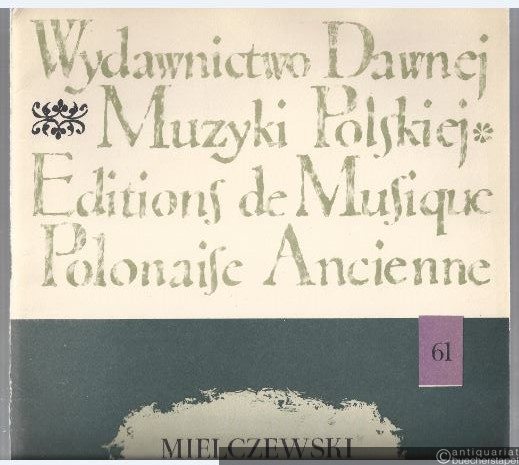 Wydawnictwo Dawnej
Muzyki Polſkiej
Editionſ de Muſique
Polonaiſe Ancienne
61
MIELCZEWSKI
antiquariat
buecherstapel